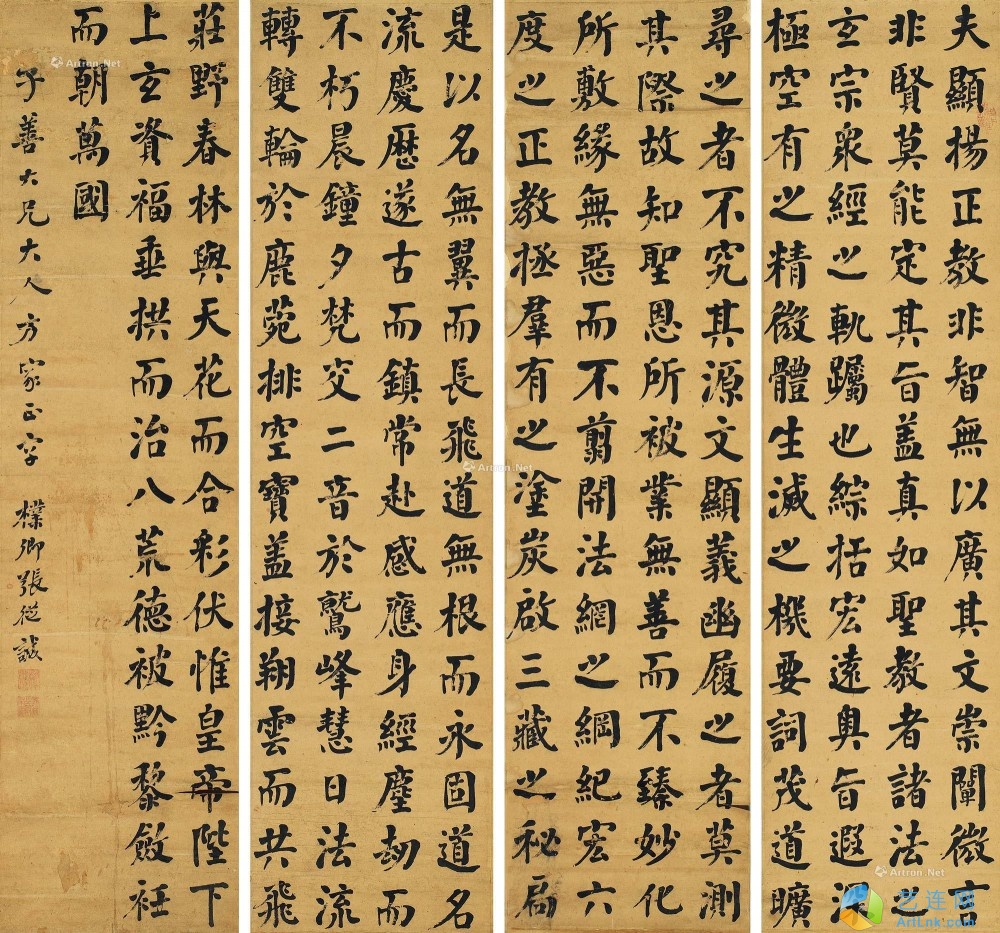 夫顯揚正教非智無以廣其文崇闡微言
非賢莫能定其旨蓋真如聖教者諸法之
玄宗眾經之軌躅也綜括宏遠奧旨遐深
極空有之精微體生滅之機要詞茂道曠
尋之者不究其源文顯義幽履之者莫測
其際故知聖恩所被業無善而不臻妙化
所敷緣無惡而不翦開法網之綱紀宏六
度之正教拯羣有之塗炭啟三藏之秘扃
是以名無翼而長飛道無根而永固道名
流慶歷遂古而鎮常赴感應身經塵劫而
不朽晨鐘夕梵交二音於鷲峰慧日法流
轉雙輪於鹿菀排空寶蓋接翔雲而共飛
莊野春林與天花而合彩伏惟皇帝陛下
上玄資福垂拱而治八荒德被黔黎斂衽
而朝萬國
子善大兄大人方家正字
樸卿張從
Artron.Net
Artron.Net
Artron.Net
Artron.Net
艺连网
ArtLnk.com